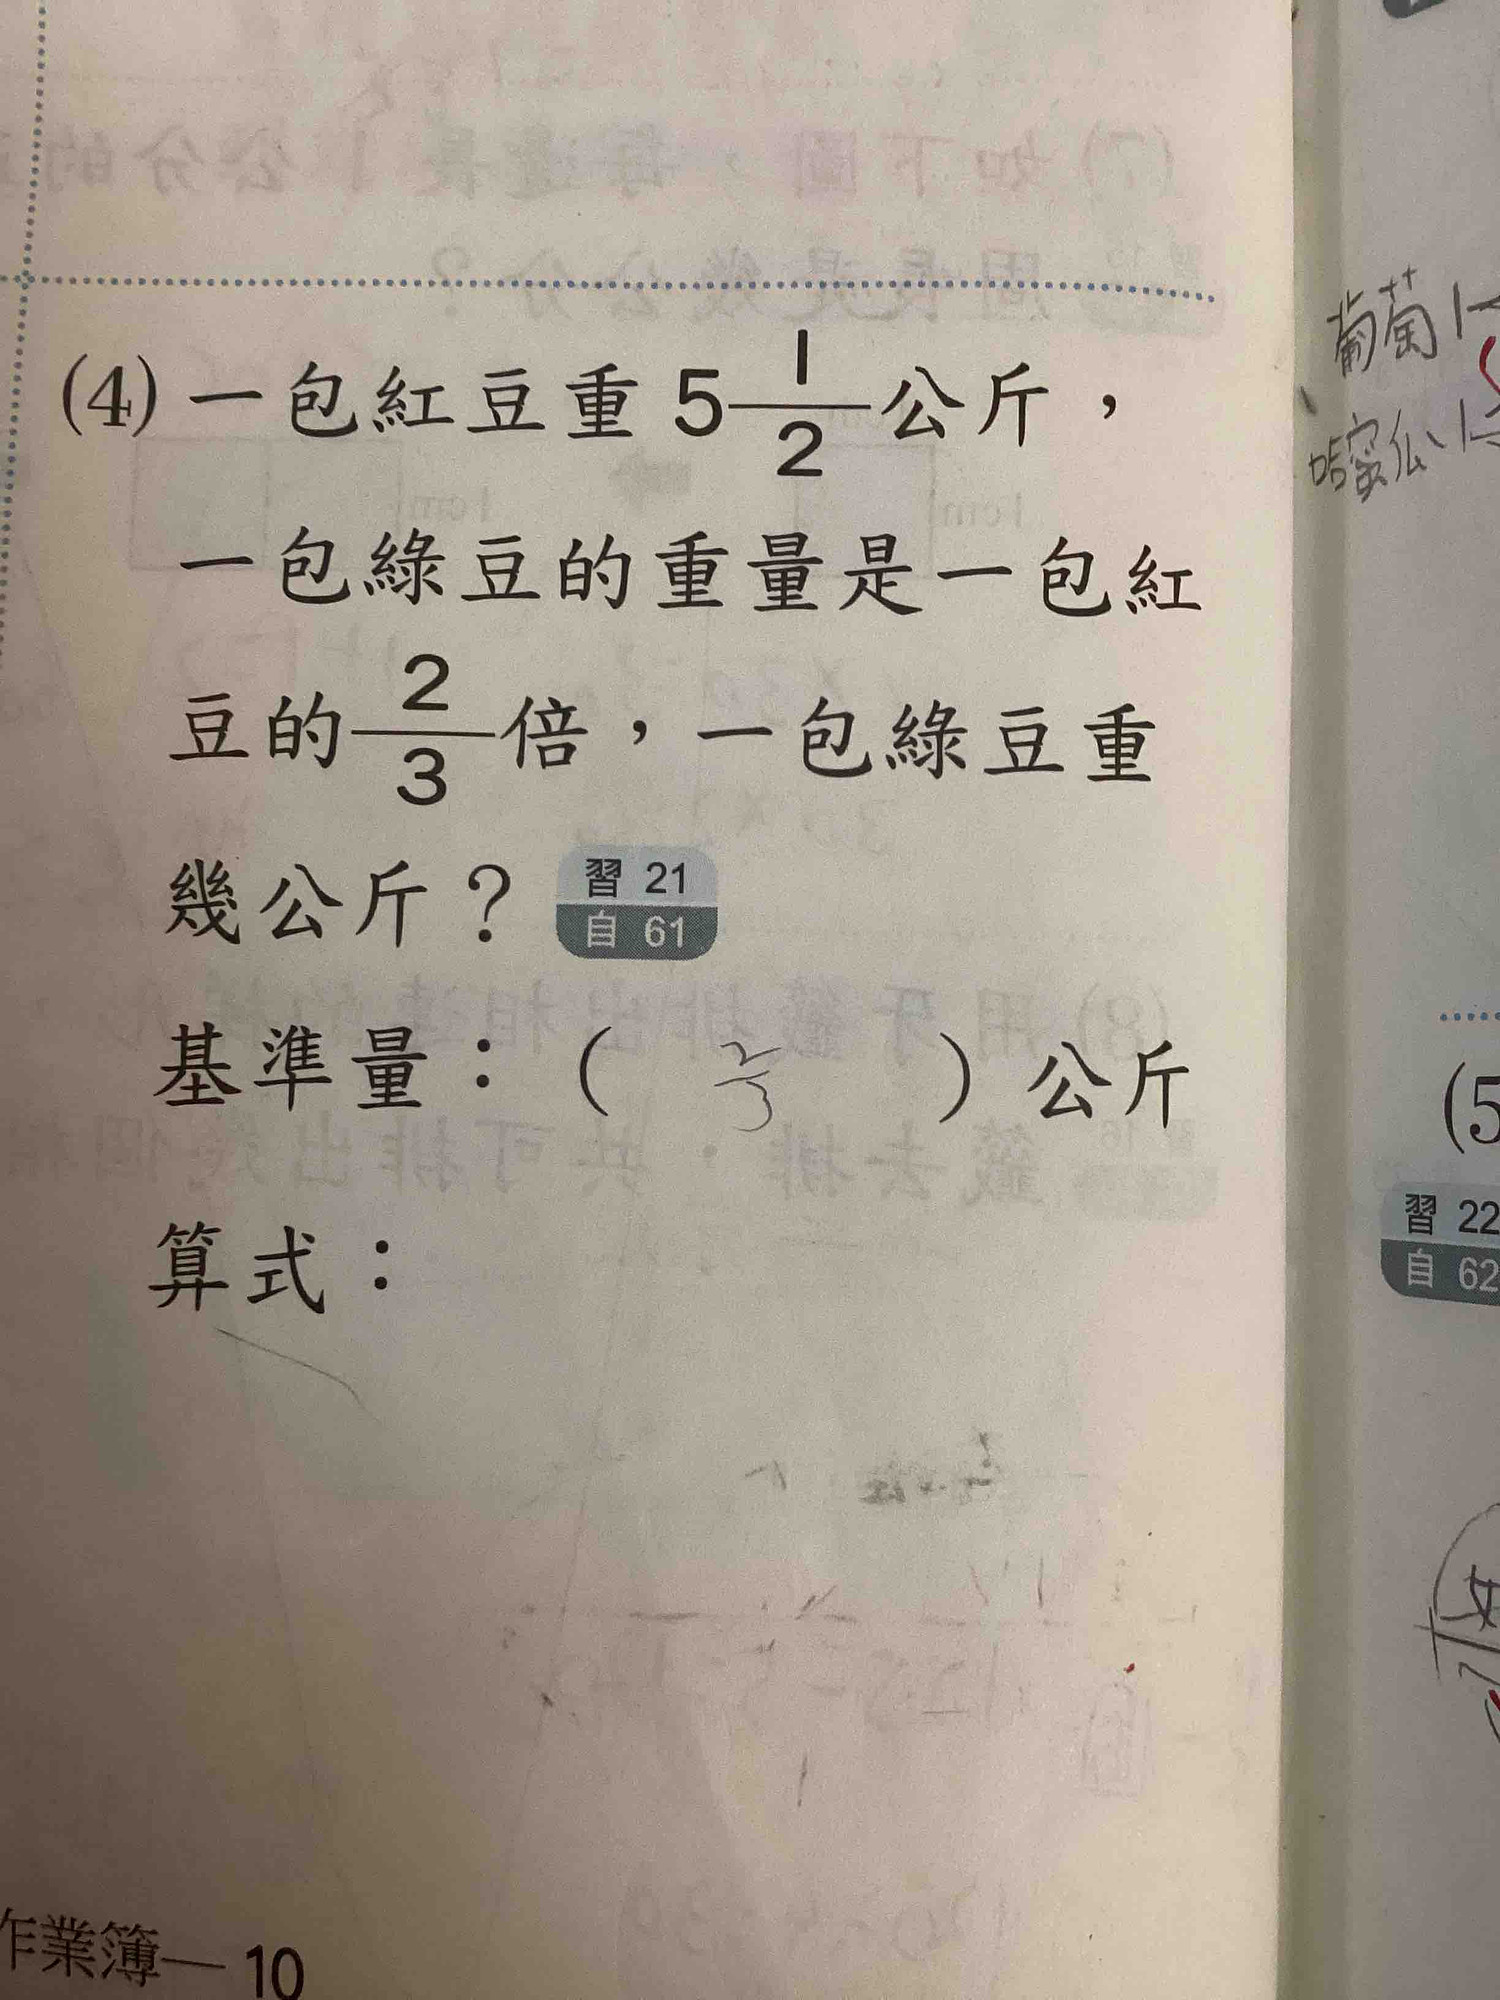 (4) 一包紅豆重 5 1/2 公斤，
一包綠豆的重量是一包紅
豆的 2/3 倍，一包綠豆重
幾公斤？ 習 21 自 61
基準量：( 2/3 ) 公斤
算式：
作業簿—10
葡萄
哈蜜瓜
(5
習 22
自 62